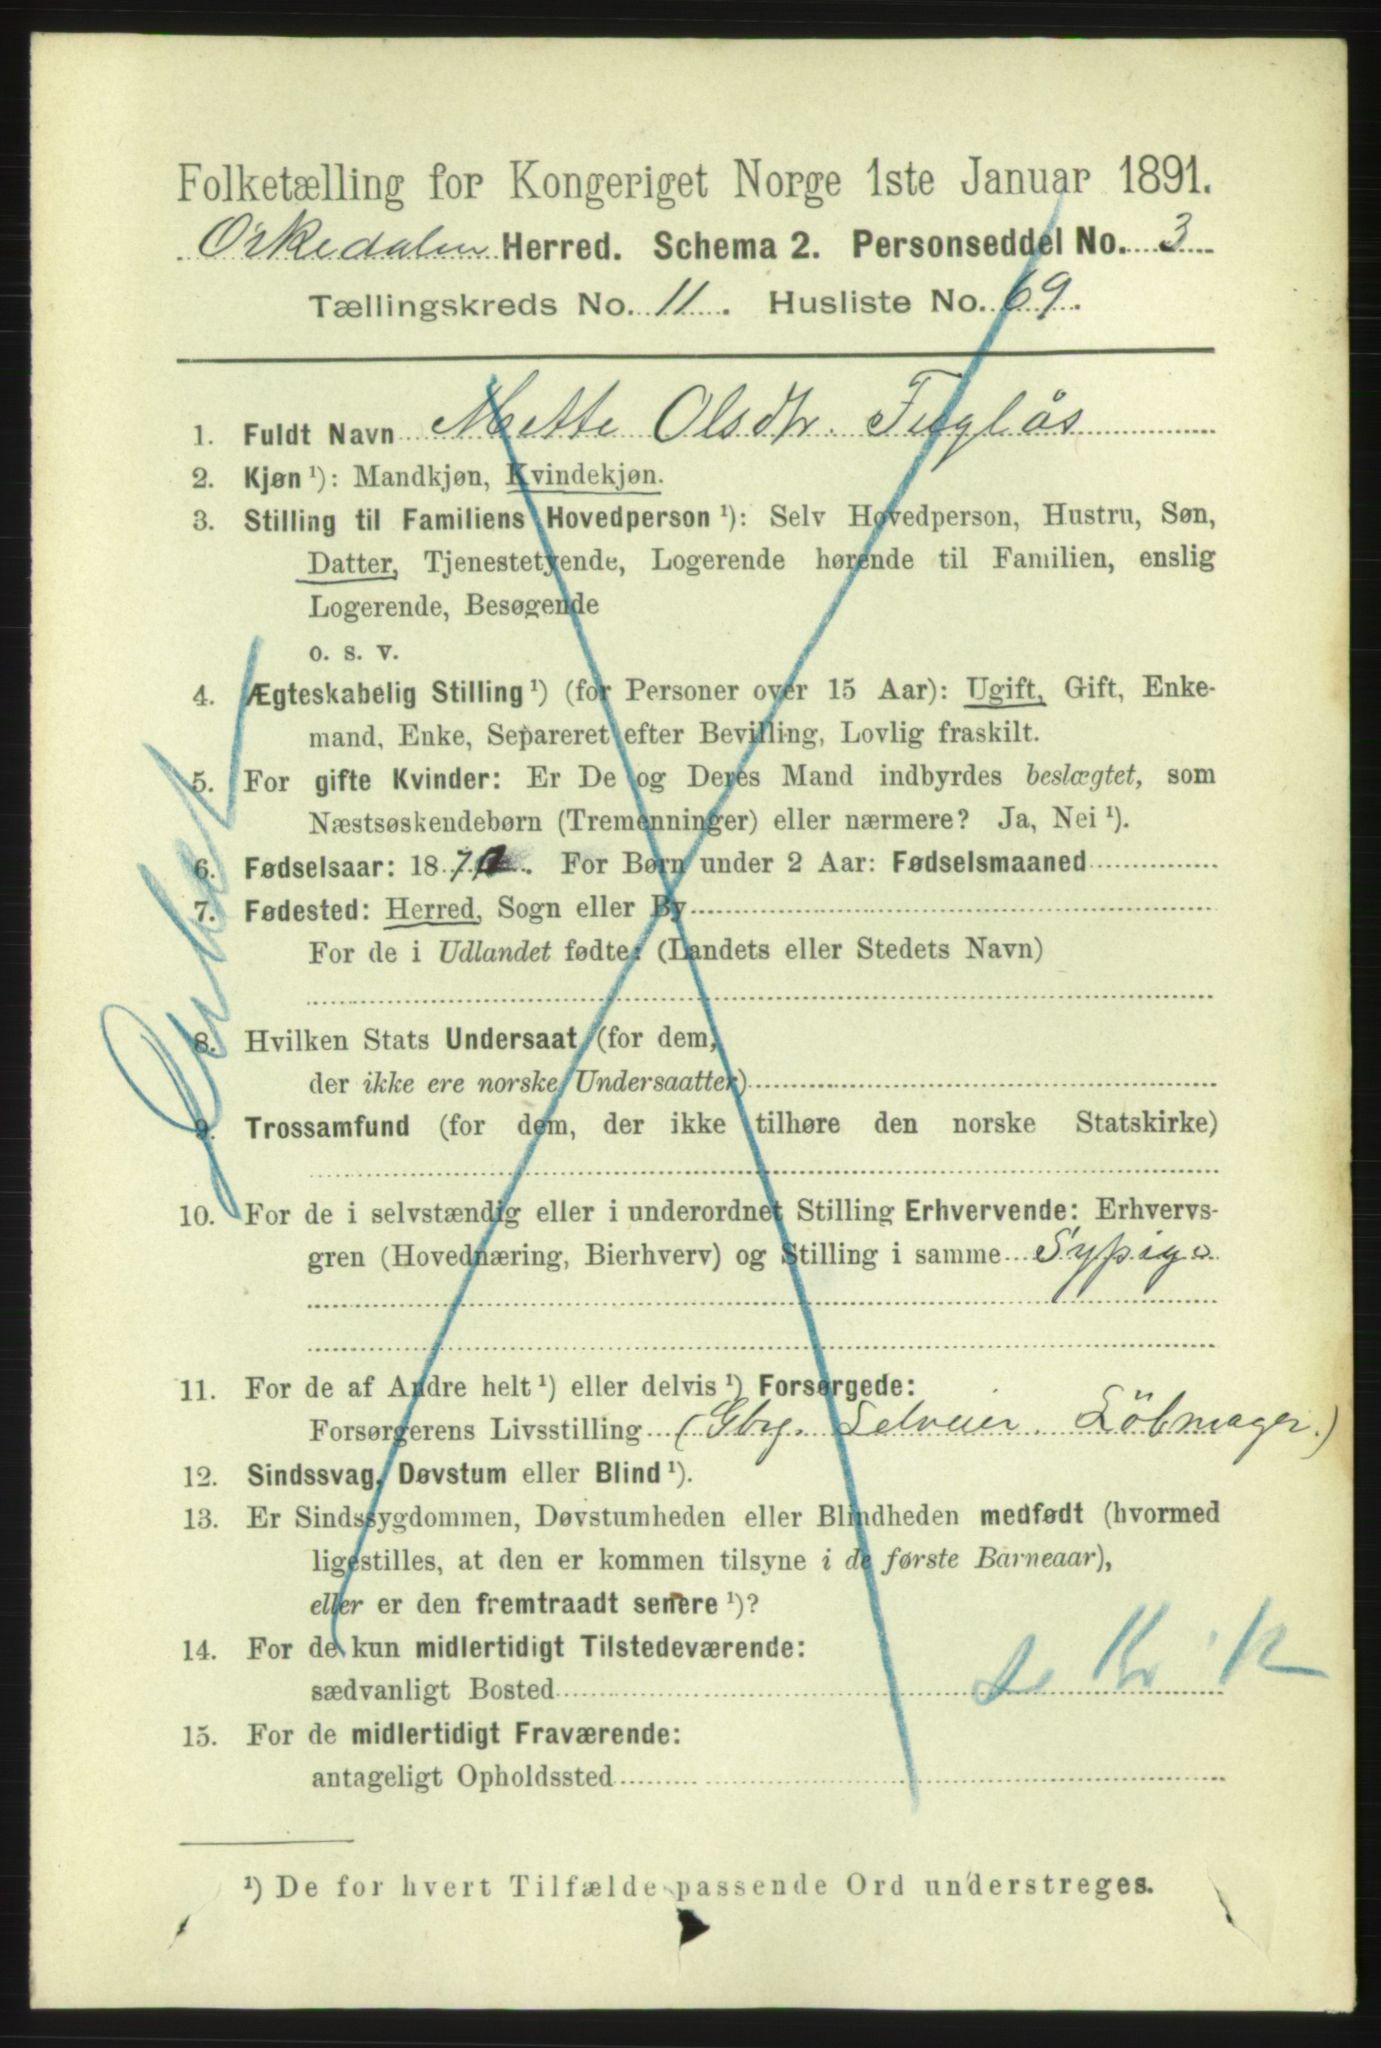 Folketælling for Kongeriget Norge 1ste Januar 1891.
Orkedalen Herred. Schema 2. Personseddel No. 3
Tællingskreds No. 11. Husliste No. 69.
1. Fuldt Navn Mette Olsdtr. Fuglås
2. Kjøn ¹): Mandkjøn, Kvindekjøn.
3. Stilling til Familiens Hovedperson ¹): Selv Hovedperson, Hustru, Søn,
Datter, Tjenestetyende, Logerende hørende til Familien, enslig
Logerende, Besøgende
o. s. v.
4. Ægteskabelig Stilling ¹) (for Personer over 15 Aar): Ugift, Gift, Enke-
mand, Enke, Separeret efter Bevilling, Lovlig fraskilt.
5. For gifte Kvinder: Er De og Deres Mand indbyrdes beslægtet, som
Næstsøskendebørn (Tremenninger) eller nærmere? Ja, Nei ¹).
6. Fødselsaar: 18 . For Børn under 2 Aar: Fødselsmaaned
7. Fødested: Herred, Sogn eller By
For de i Udlandet fødte: (Landets eller Stedets Navn)
8. Hvilken Stats Undersaat (for dem,
der ikke ere norske Undersaatter)
9. Trossamfund (for dem, der ikke tilhøre den norske Statskirke)
10. For de i selvstændig eller i underordnet Stilling Erhvervende: Erhvervs-
gren (Hovednæring, Bierhverv) og Stilling i samme Sypige
11. For de af Andre helt ¹) eller delvis ¹) Forsørgede:
Forsørgerens Livsstilling (Gbrg. Selveier. Löbmager.)
12. Sindssvag, Døvstum eller Blind ¹).
13. Er Sindssygdommen, Døvstumheden eller Blindheden medfødt (hvormed
ligestilles, at den er kommen tilsyne i de første Barneaar),
eller er den fremtraadt senere ¹)?
14. For de kun midlertidigt Tilstedeværende:
sædvanligt Bosted
15. For de midlertidigt Fraværende:
antageligt Opholdssted
¹) De for hvert Tilfælde passende Ord understreges.